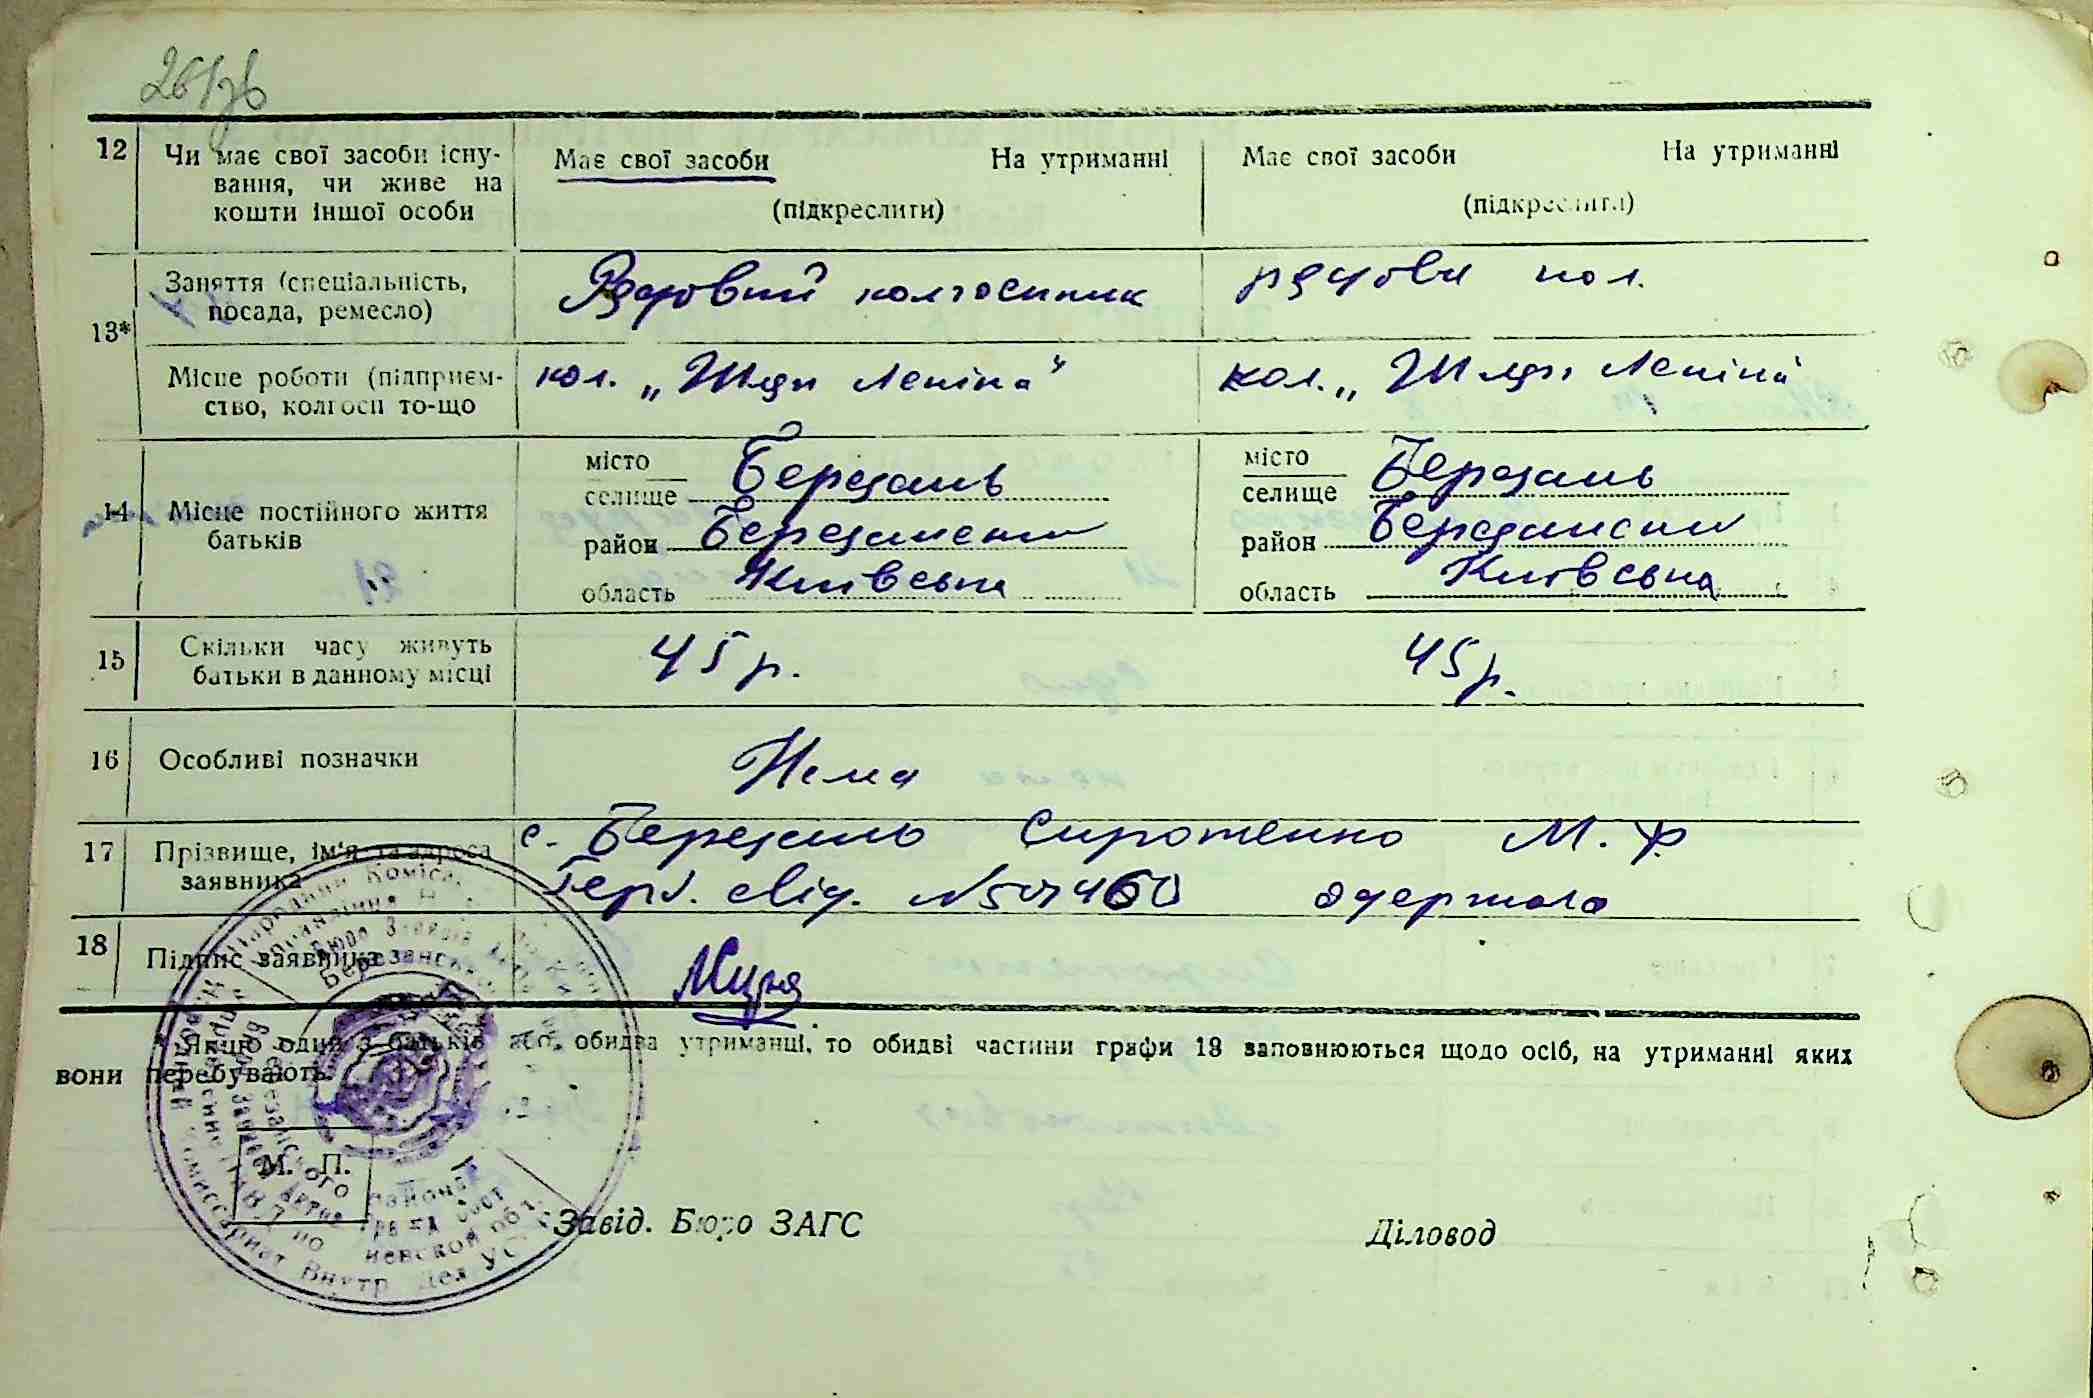 261зв
12 Чи має свої засоби існу- Має свої засоби На утриманні Має свої засоби На утриманні
вання, чи живе на
кошти іншої особи (підкреслити) (підкреслити)
Заняття (спеціальність, Рядовий колгоспник рядови кол.
посада, ремесло)
13*
Місце роботи (підприєм- кол. „Шлях Леніна" кол. „Шлях Леніна"
ство, колгосп то-що
місто Березань місто Березань
селище селище
14 Місце постійного життя
батьків район Березански район Березански
область Київська область Київська
15 Скільки часу живуть 45 р. 45 р.
батьки в данному місці
16 Особливі позначки Нема
17 Прізвище, ім'я та адреса с. Березань Сиротенко М. Ф.
заявника Герб. свід. одержала
18 Підпис заявника
* Якщо один з батьків або обидва утриманці, то обидві частини графи 13 заповнюються щодо осіб, на утриманні яких
вони перебувають.
М. П.
Завід. Бюро ЗАГС Діловод